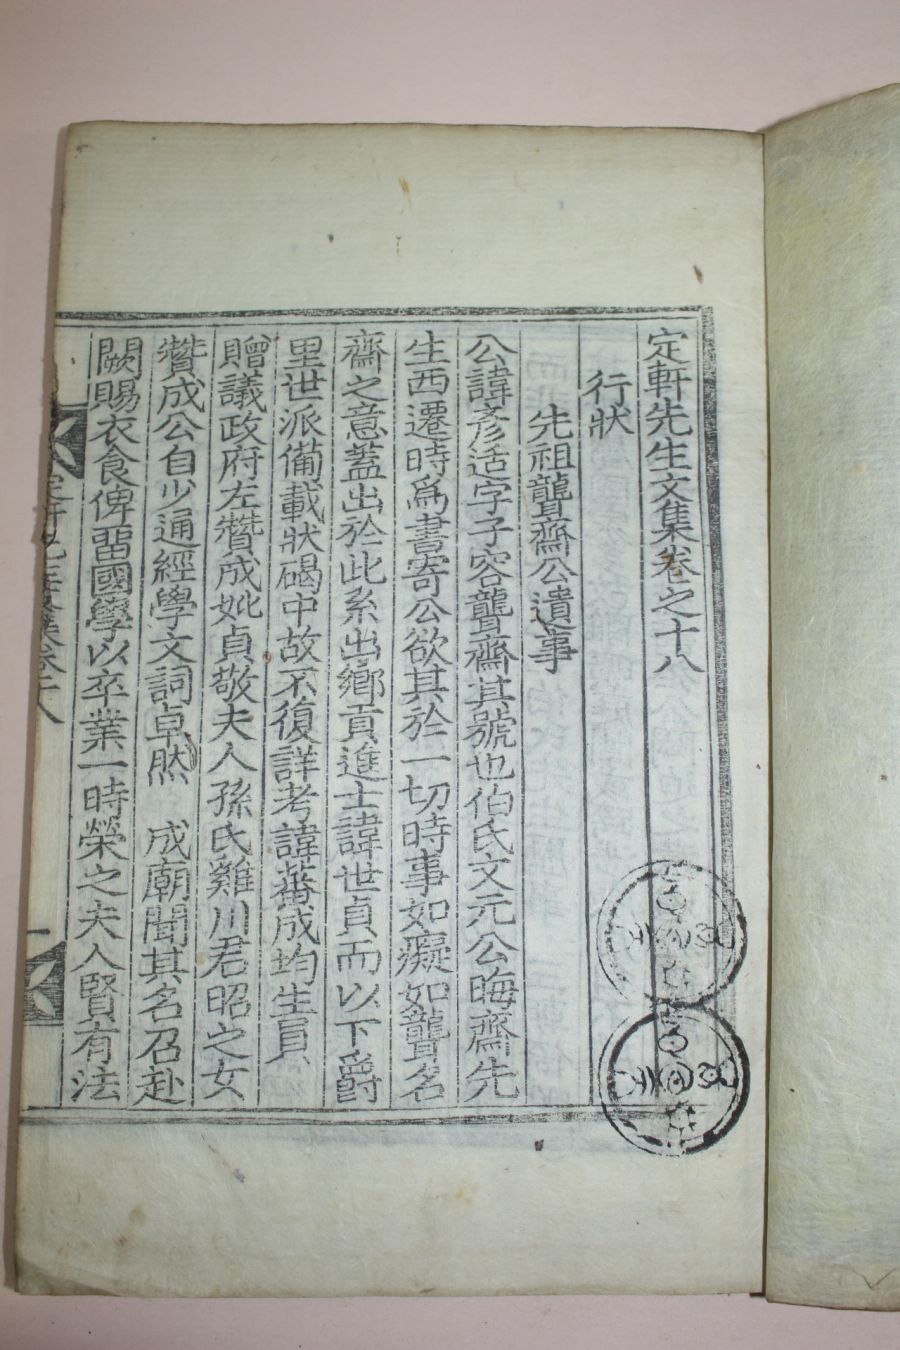 定軒先生文集卷之十八
行狀
先祖聾齋公遺事
公諱彥适字子容聾齋其號也伯氏文元公晦齋先
生西遷時爲書寄公欲其於一切時事如癡如聾名
齋之意蓋出於此系出鄕貢進士諱世貞而以下爵
里世派備載狀碣中故不復詳考諱蕃成均生員
贈議政府左贊成妣貞敬夫人孫氏雞川君昭之女
贊成公自少通經學文詞卓然　成廟聞其名召赴
闕賜衣食俾留國學以卒業一時榮之夫人賢有法
定軒先生文集卷十八